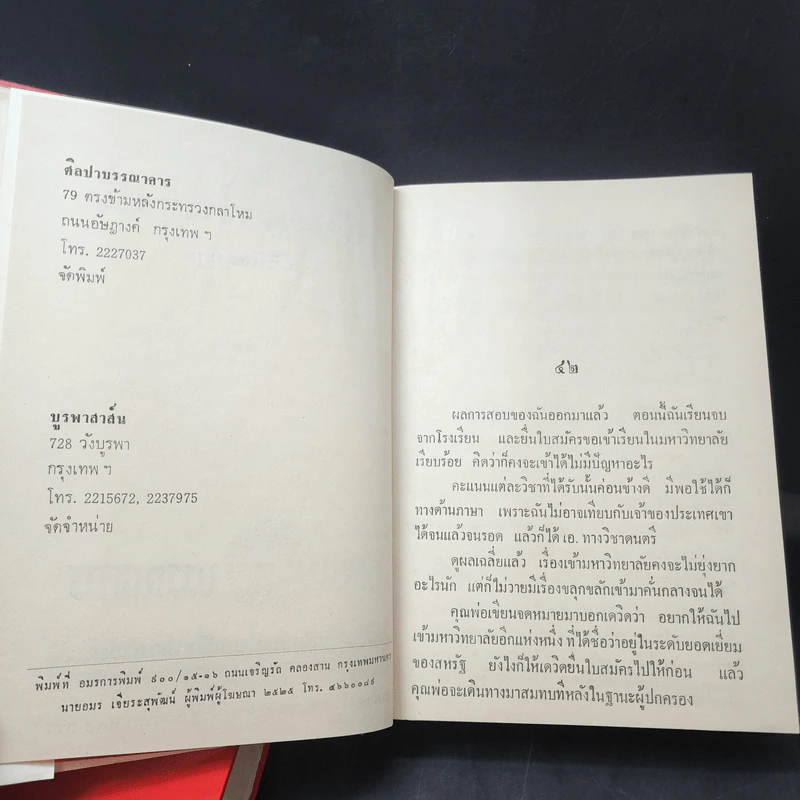 ศิลปาบรรณาคาร
79 ตรงข้ามหลังกระทรวงกลาโหม
ถนนอัษฎางค์ กรุงเทพ ฯ
โทร. 2227037
จัดพิมพ์
บูรพาสาส์น
728 วังบูรพา
กรุงเทพ ฯ
โทร. 2215672, 2237975
จัดจำหน่าย
พิมพ์ที่ อมรการพิมพ์ ๙๐๐/๑๕-๑๖ ถนนเจริญรัถ คลองสาน กรุงเทพมหานคร
นายอมร เจียระสุพัฒน์ ผู้พิมพ์ผู้โฆษณา ๒๕๒๕ โทร. ๔๖๖๐๐๘๙
๔๒
ผลการสอบของฉันออกมาแล้ว ตอนนี้ฉันเรียนจบ
จากโรงเรียน และยื่นใบสมัครขอเข้าเรียนในมหาวิทยาลัย
เรียบร้อย คิดว่าก็คงจะเข้าได้ไม่มีปัญหาอะไร
คะแนนแต่ละวิชาที่ได้รับนั้นค่อนข้างดี มีพอใช้ได้ก็
ทางด้านภาษา เพราะฉันไม่อาจเทียบกับเจ้าของประเทศเขา
ได้จนแล้วจนรอด แล้วก็ได้ เอ. ทางวิชาดนตรี
ดูผลเฉลี่ยแล้ว เรื่องเข้ามหาวิทยาลัยคงจะไม่ยุ่งยาก
อะไรนัก แต่ก็ไม่วายมีเรื่องขลุกขลักเข้ามาคั่นกลางจนได้
คุณพ่อเขียนจดหมายมาบอกเดวิดว่า อยากให้ฉันไป
เข้ามหาวิทยาลัยอีกแห่งหนึ่ง ที่ได้ชื่อว่าอยู่ในระดับยอดเยี่ยม
ของสหรัฐ ยังไงก็ให้เดวิดยื่นใบสมัครไปให้ก่อน แล้ว
คุณพ่อจะเดินทางมาสมทบทีหลังในฐานะผู้ปกครอง